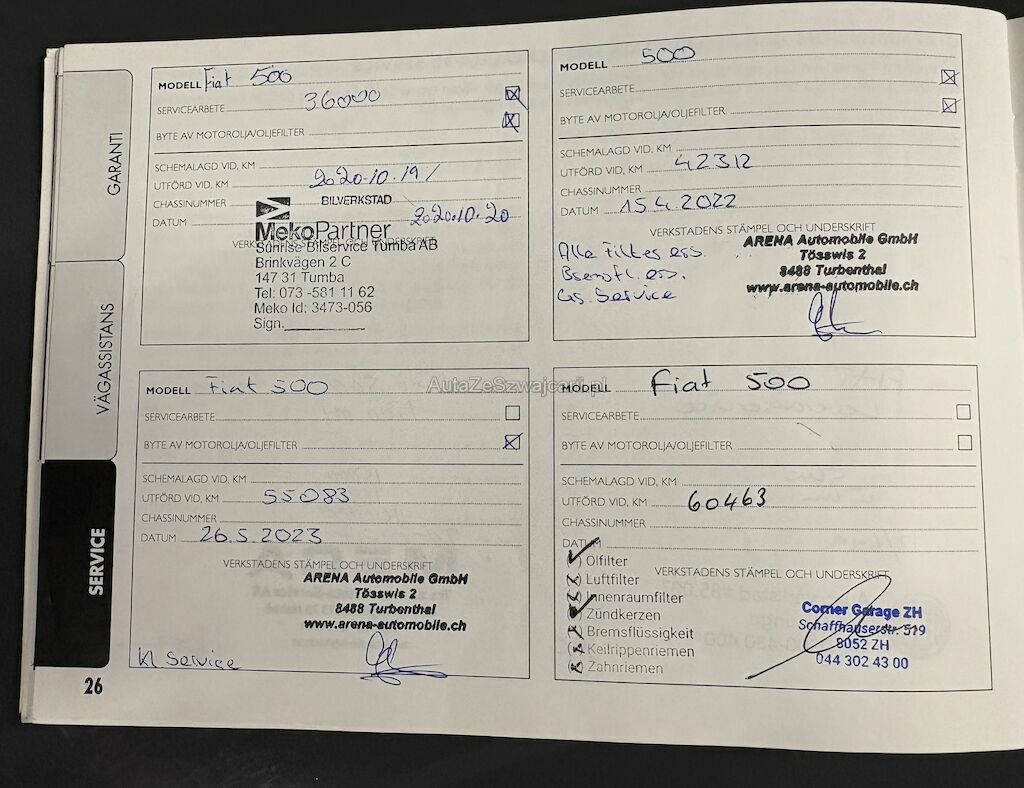 GARANTI
VÄGASSISTANS
SERVICE
26
MODELL Fiat 500
SERVICEARBETE 36000
BYTE AV MOTOROLJA/OLJEFILTER
SCHEMALAGD VID, KM
UTFÖRD VID, KM 2020-10-19/
CHASSINUMMER
DATUM 2020.10.20
VERKSTADENS STÄMPEL OCH UNDERSKRIFT
BILVERKSTAD
MekoPartner
Sunrise Bilservice Tumba AB
Brinkvägen 2 C
147 31 Tumba
Tel: 073 -581 11 62
Meko Id: 3473-056
Sign.
MODELL 500
SERVICEARBETE
BYTE AV MOTOROLJA/OLJEFILTER
SCHEMALAGD VID, KM
UTFÖRD VID, KM 42312
CHASSINUMMER
DATUM 15.4.2022
VERKSTADENS STÄMPEL OCH UNDERSKRIFT
Alle Filter ers.
Bremsfl. ers.
Gs. Service
ARENA Automobile GmbH
Tösswis 2
8488 Turbenthal
www.arena-automobile.ch
MODELL Fiat 500
SERVICEARBETE
BYTE AV MOTOROLJA/OLJEFILTER
SCHEMALAGD VID, KM
UTFÖRD VID, KM 55083
CHASSINUMMER
DATUM 26.5.2023
VERKSTADENS STÄMPEL OCH UNDERSKRIFT
ARENA Automobile GmbH
Tösswis 2
8488 Turbenthal
www.arena-automobile.ch
Kl Service
AutaZeSzwajcarii.pl
MODELL Fiat 500
SERVICEARBETE
BYTE AV MOTOROLJA/OLJEFILTER
SCHEMALAGD VID, KM
UTFÖRD VID, KM 60463
CHASSINUMMER
DATUM
VERKSTADENS STÄMPEL OCH UNDERSKRIFT
Ölfilter
Luftfilter
Innenraumfilter
Zündkerzen
Bremsflüssigkeit
Keilrippenriemen
Zahnriemen
Corner Garage ZH
Schaffhauserstr. 519
8052 ZH
044 302 43 00